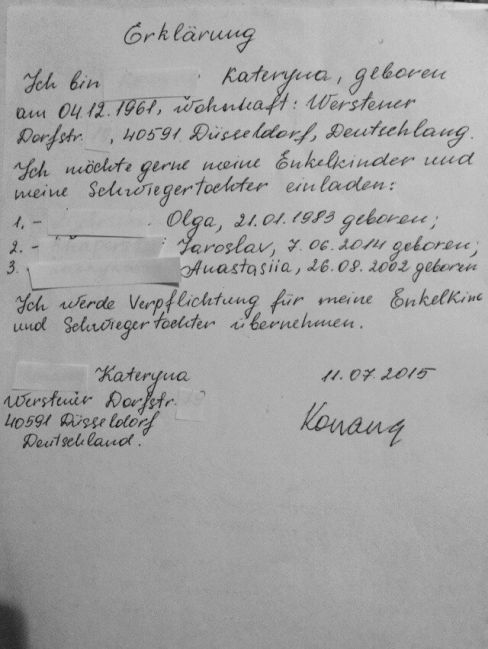 Erklärung
Ich bin Kateryna, geboren
am 04.12.1961, wohnhaft: Werstener
Dorfstr. , 40591 Düsseldorf, Deutschlang.
Ich möchte gerne meine Enkelkinder und
meine Schwiegertochter einladen:
1. - Olga, 21.01.1983 geboren;
2. - Jaroslav, 7.06.2014 geboren;
3. Anastasiia, 26.08.2002 geboren
Ich werde Verpflichtung für meine Enkelkind
und Schwiegertochter übernehmen.
Kateryna 11.07.2015
Werstener Dorfstr.
40591 Düsseldorf
Deutschland.